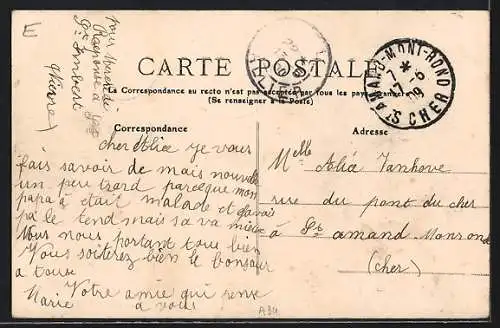 E
pour
Réponse à
Gd Imbert
CARTE POSTALE
La Correspondance au recto n'est pas acceptée par tous les pays étrangers
(Se renseigner à la Poste)
ST AMAND-MONT-ROND
7 *
17 -6
09
CHER
Correspondance
Adresse
cher Alia ye vous
fais savoir de mais nouvelle
un peu trard parceque mon
papa a était malade et gavais
pa le tend mais sa va mieux
Nous nous portant tous bien
Vous soiterez bien le bonsoir
a tous
Votre amie qui pense
a vous
Marie
Melle Alia Vanhove
rue du pont du cher
à St amand Monrond
(cher)
A34